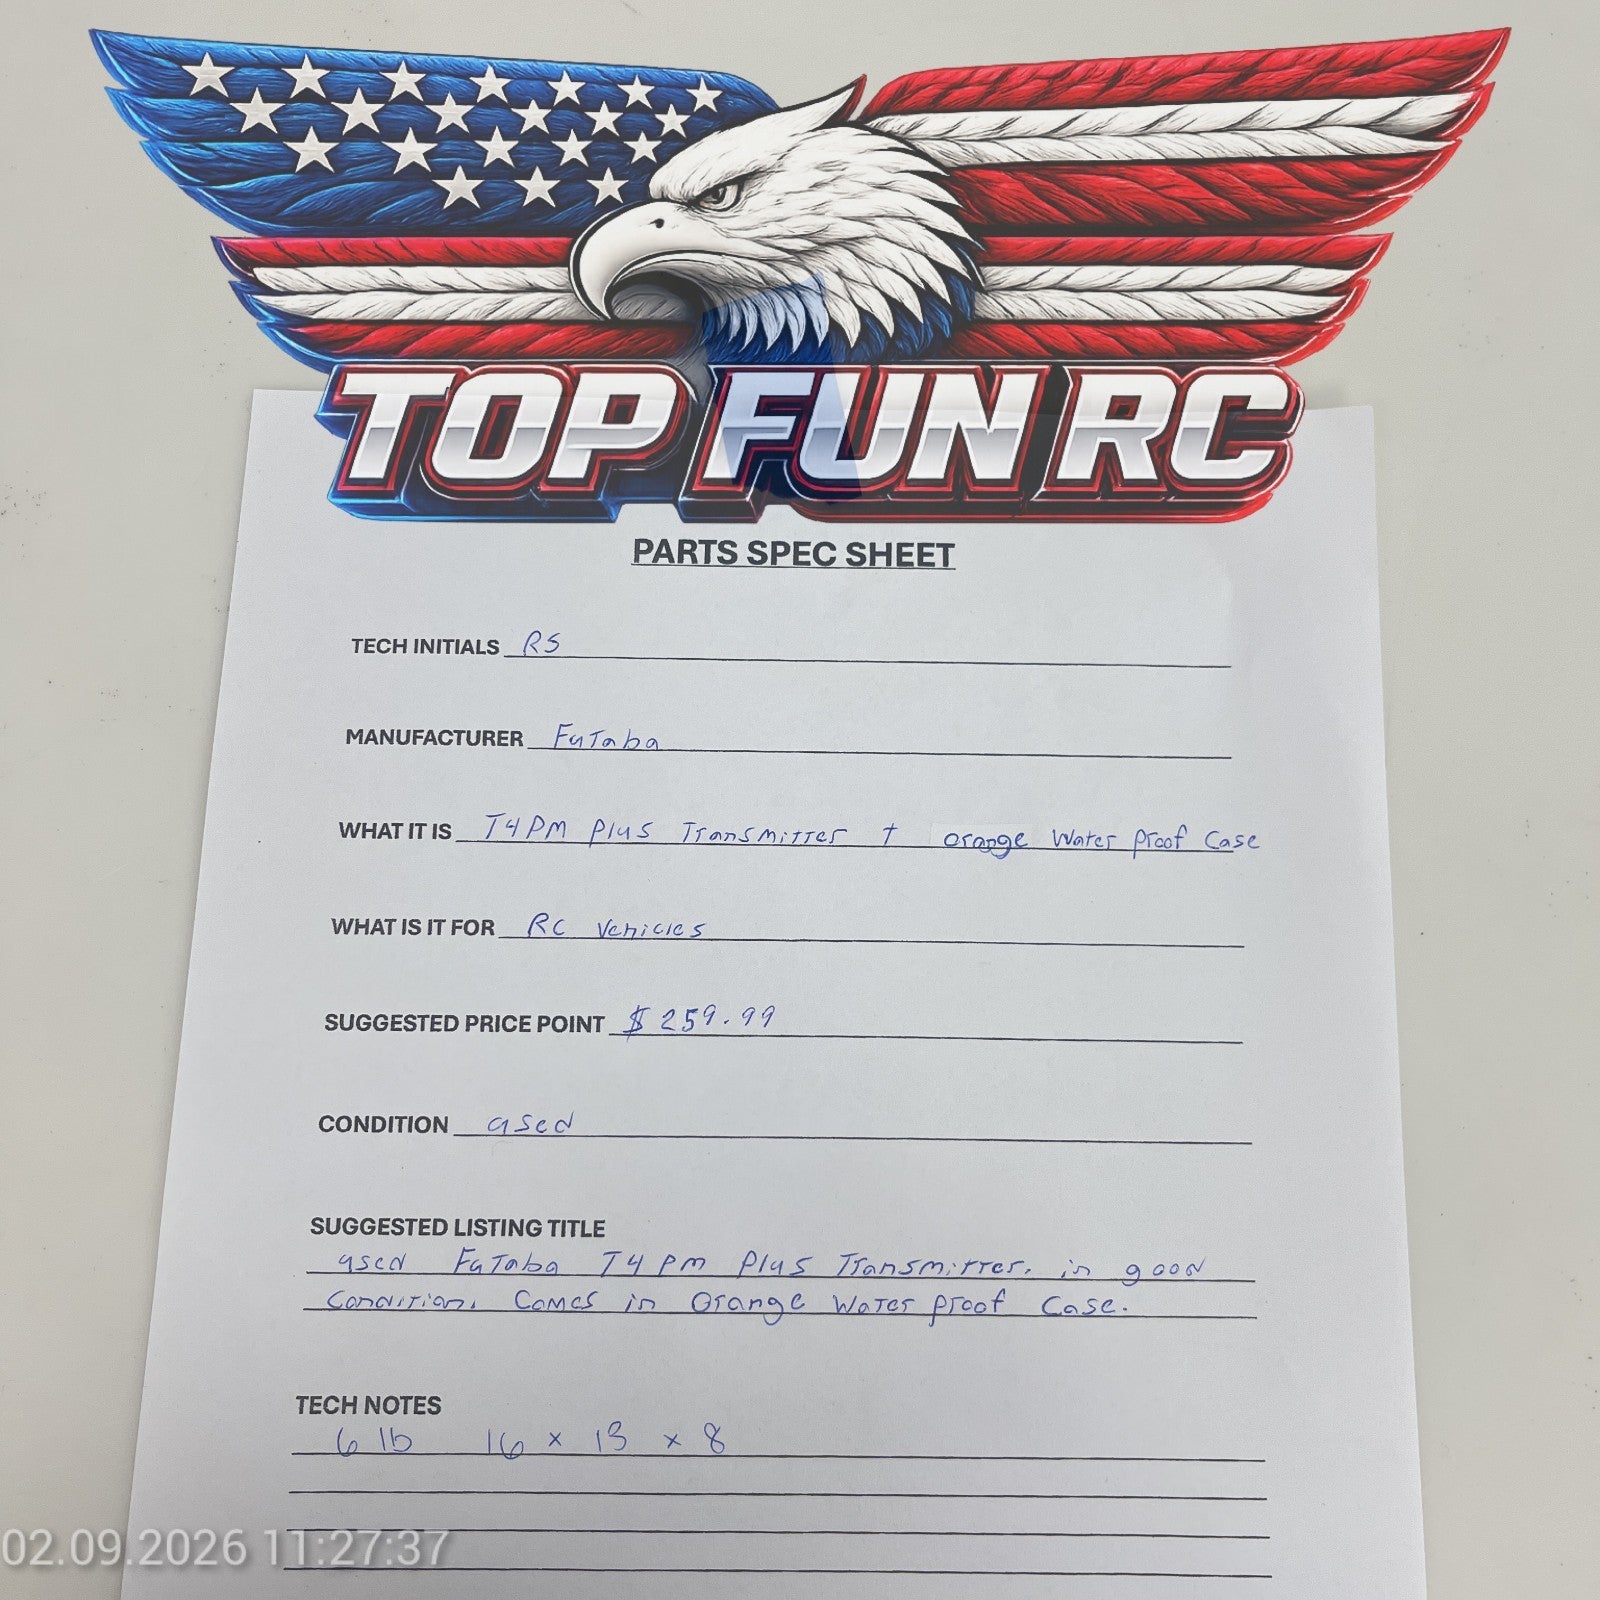 TOP FUN RC
PARTS SPEC SHEET
TECH INITIALS RS
MANUFACTURER Futaba
WHAT IT IS T4PM Plus Transmitter + orange Water proof Case
WHAT IS IT FOR RC Vehicles
SUGGESTED PRICE POINT $259.99
CONDITION used
SUGGESTED LISTING TITLE
used Futaba T4PM Plus Transmitter. in good
Condition. Comes in Orange Water proof Case.
TECH NOTES
6 lb 16 x 13 x 8
02.09.2026 11:27:37